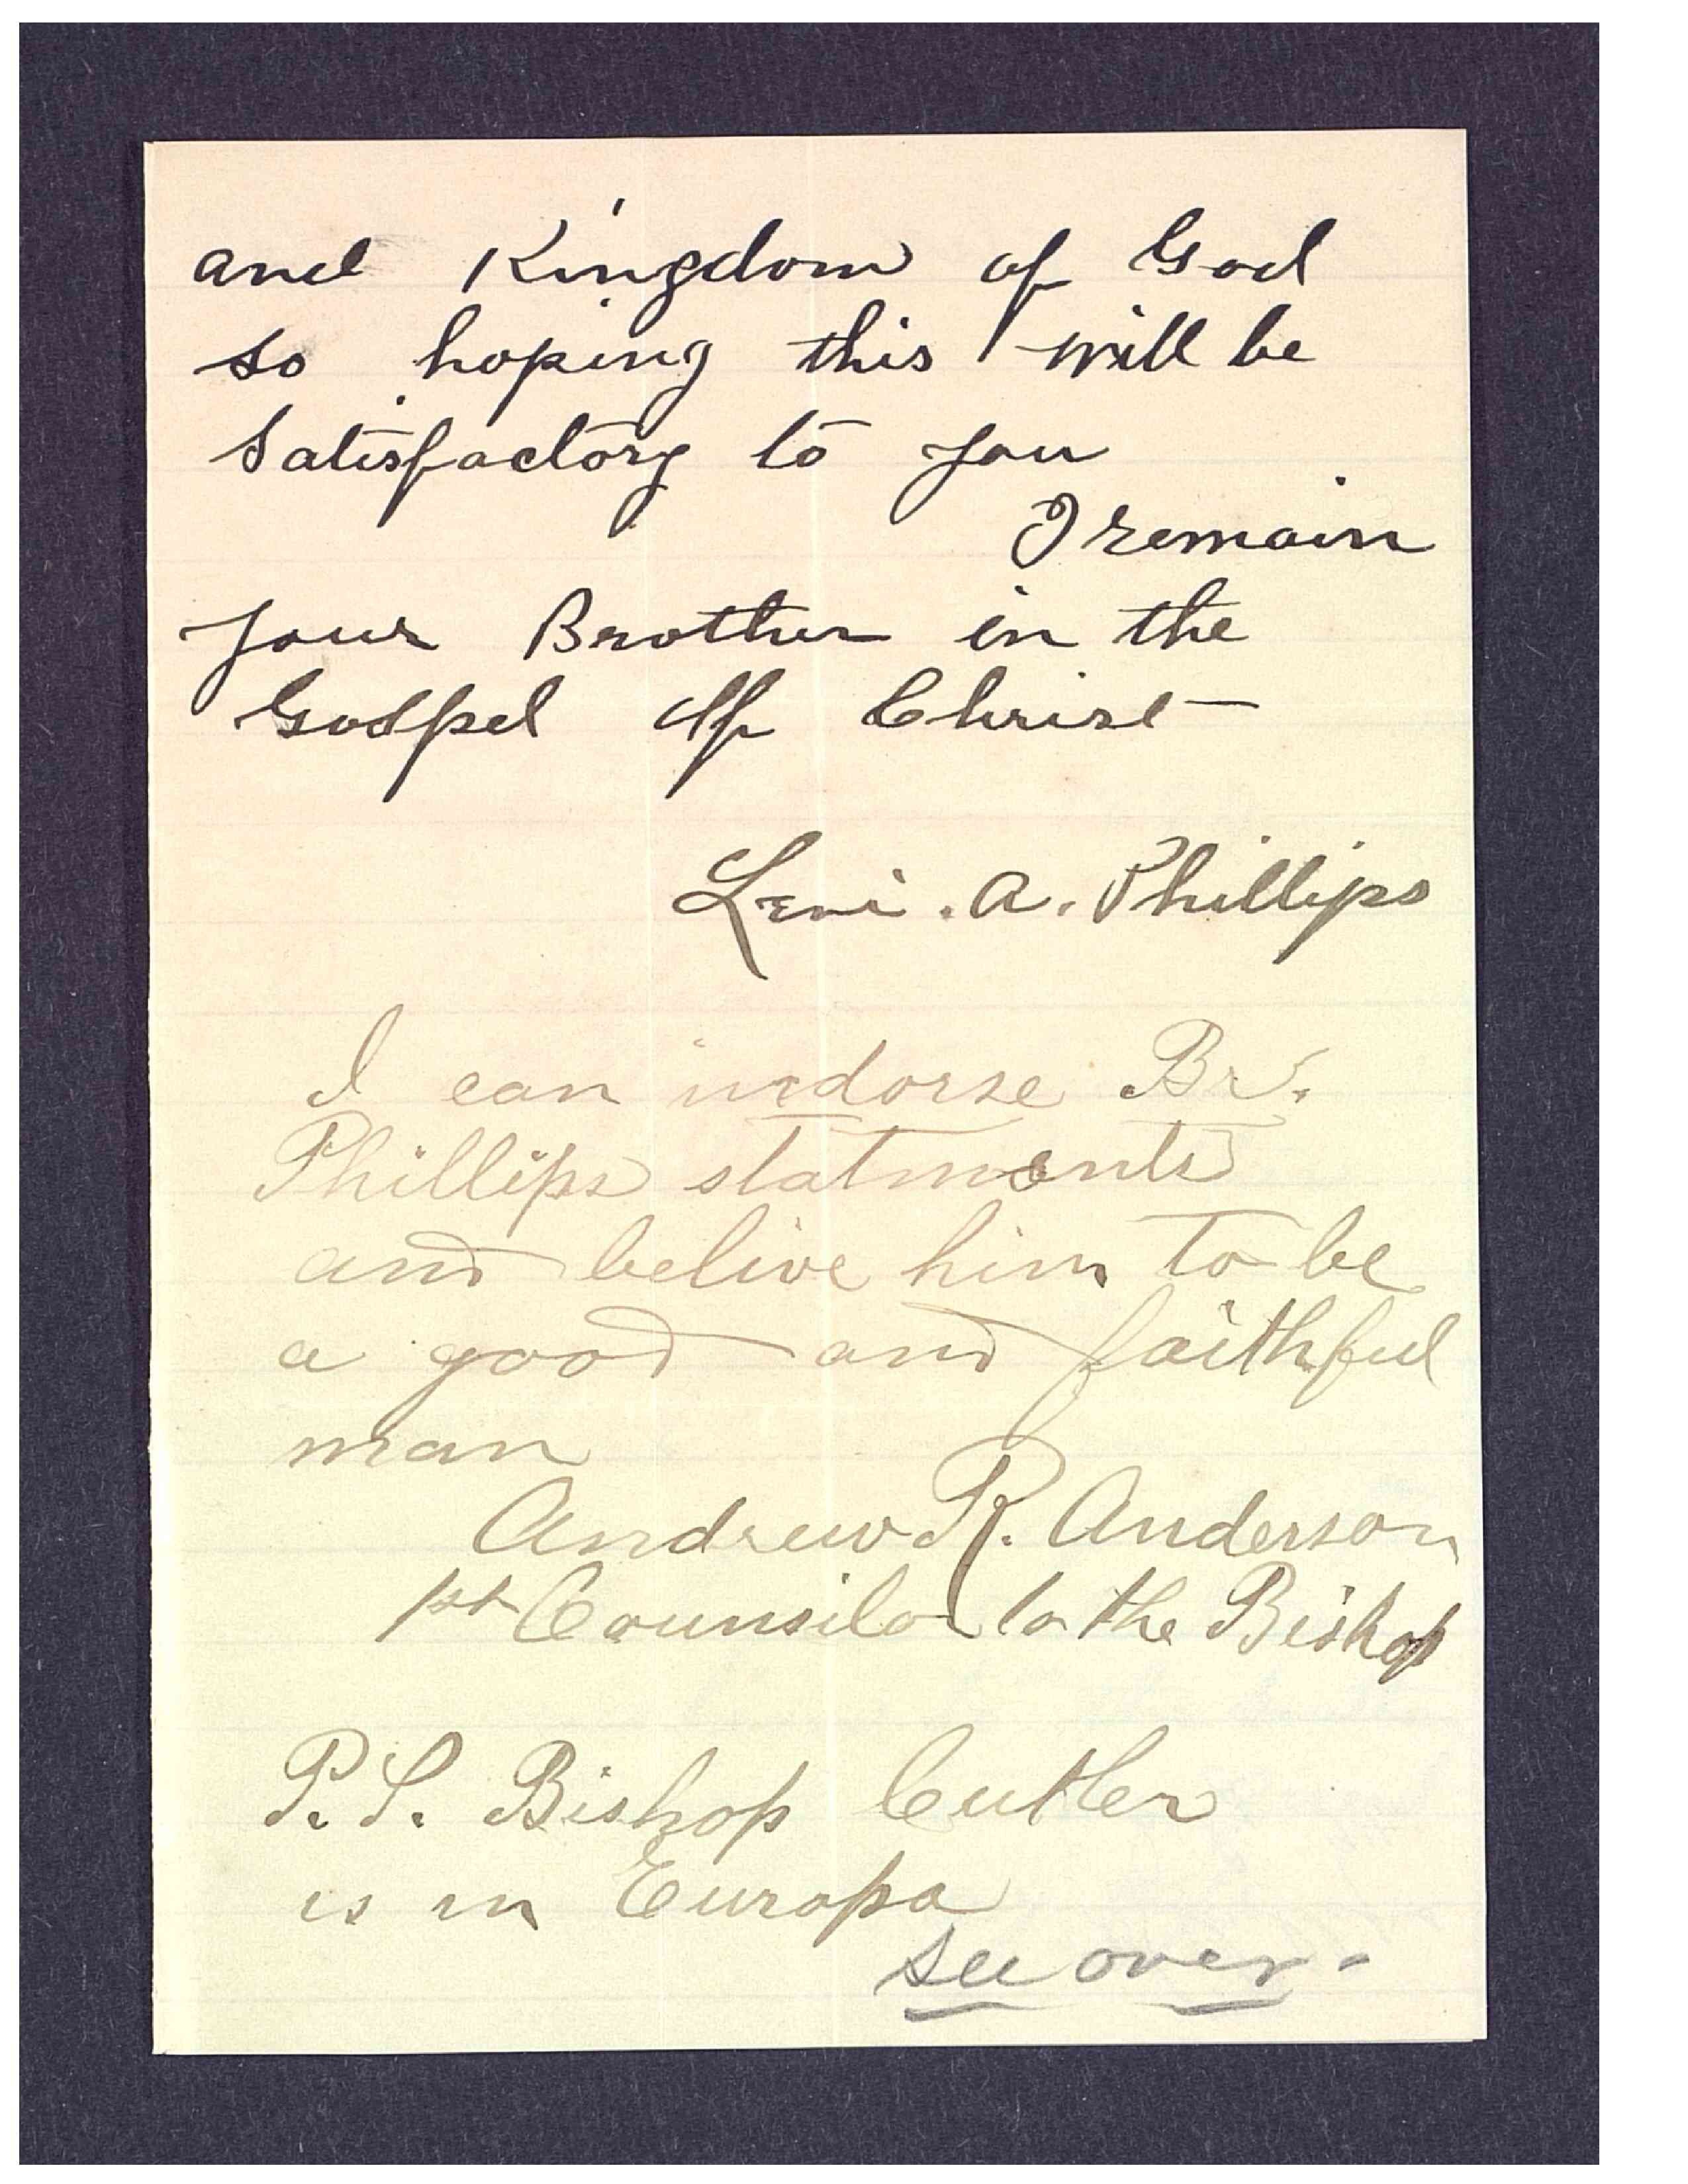 and Kingdom of God
so hoping this will be
Satisfactory to you
I remain
your Brother in the
Gospel Of Christ
Levi. A. Phillips
I can indorse Br.
Phillips statments
and belive him to be
a good and faithful
man
Andrew R. Anderson
1st Counsilor to the Bishop
P.S. Bishop Cutler
is in Europa
see over.